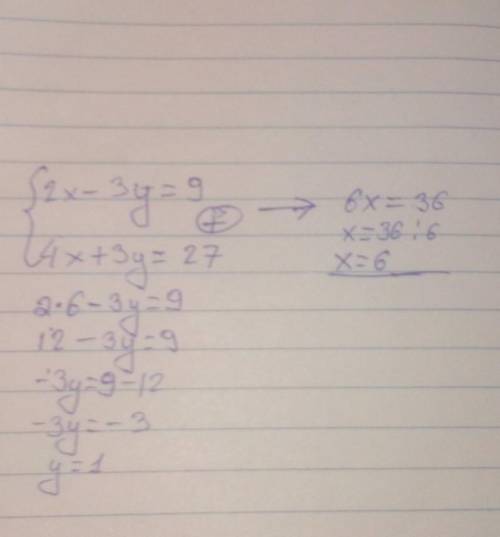 2x-3y=9
⊕ → 6x=36
4x+3y=27
x=36:6
x=6
2·6-3y=9
12-3y=9
-3y=9-12
-3y=-3
y=1